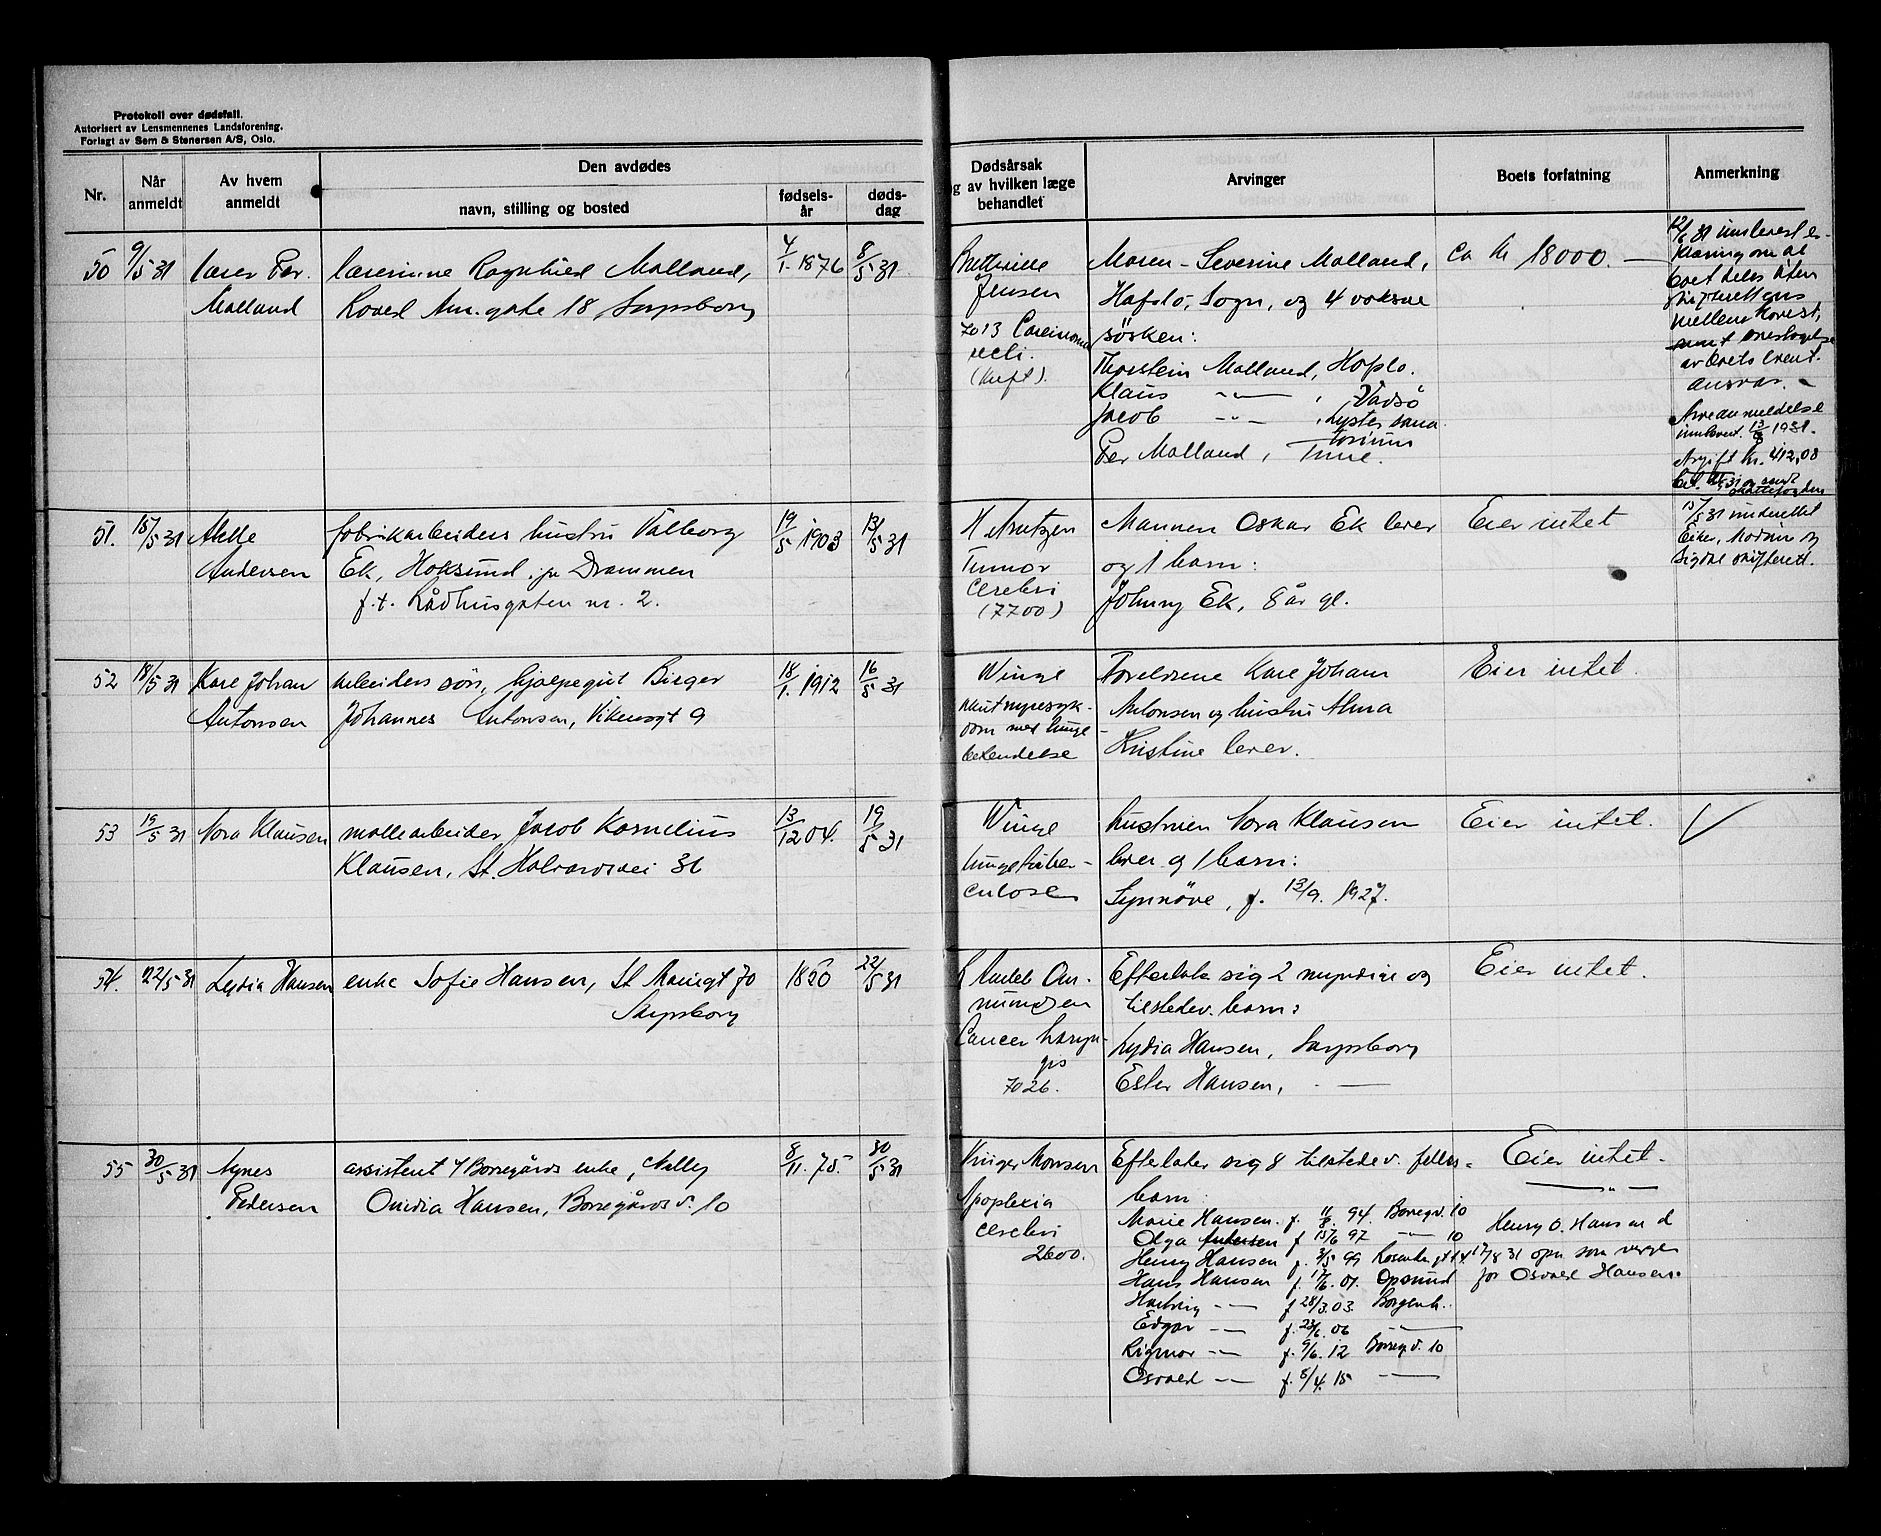 Protokoll over dødsfall.
Autorisert av Lensmennenes Landsforening.
Forlagt av Sem & Stenersen A/S, Oslo.
Nr.
Når anmeldt
Av hvem anmeldt
Den avdødes
navn, stilling og bosted
fødselsår
dødsdag
Dødsårsak
og av hvilken læge behandlet
Arvinger
Boets forfatning
Anmerkning
50 9/5 31 lærer Per
Malland
lærerinne Ragnhild Malland,
Roald Am.gate 18 Sarpsborg
4/1. 1876
8/5 31
Jensen
7013 Carcinoma
Maren-Severine Malland,
Hafslo, Sogn, og 4 voksne
søsken:
Thorstein Malland, Hafslo.
Klaus -"- , Vadsö
Jacob -"- , Lyster sana
torium
Per Malland, Tune.
Ca kr 18000.-
12/6 31 innlevert er-
klæring om at
boet deles uten
skifterettens
mellemkomst,
samt overtagelse
av boets event.
ansvar.
Arveanmeldelse
innlevert. 13/8 1931.
Avgift kr. 412,08
51. 18/5 31
Andersen
fabrikarbeiders hustru Valborg
Ek, Hoksund, pr Drammen
f.t. Rådhusgaten nr. 2.
19/5 1903
13/5 31
H. Arntzen
Tumor
cerebri
(7700)
Mannen Oskar Ek lever
og 1 barn:
Johnny Ek, 8 år gl.
Eier intet
15/5 31 underrettet
Eiker, Modum og
Sigdal skifterett.
52 18/5 31 Kare Johan
Antonsen
arbeiders søn, hjælpegut Birger
Johannes Antonsen, Vikensgt 9
18/1. 1912
16/5 31
Winge
akut nyresyk-
dom med lunge
betendelse
Foreldrene Kare Johan
Antonsen og hustru Alma
Kristine lever.
Eier intet.
53 19/5 31 Nora Klausen
møllearbeider Jacob Kornelius
Klausen, St. Halvardsvei 36
13/12 04.
19/5 31
Winge
lungetuber-
culose
hustruen Nora Klausen
lever og 1 barn:
Synnøve, f. 13/9. 1927.
Eier intet. ✓
54. 22/5 31 Lydia Hansen
enke Sofie Hansen, St. Mariegt 70
Sarpsborg
1850
22/5 31
Am-
mundsen
Cancer laryn-
gis
7026.
Efterlate sig 2 myndige og
tilstedev. barn:
Lydia Hansen, Sarpsborg
Ester Hansen, -"-
Eier intet.
55 30/5 31 Agnes
Pedersen
assistent v/Borregårds enke, Nelly
Ovidia Hansen, Borregårdsv. 10
8/11. 75.
30/5 31
Monsen
Apoplexia
cerebri
2600.
Efterlater sig 8 tilstedev. felles-
barn:
Marie Hansen. f. 11/8. 94. Borregv. 10
Olga Andersen f 15/6 97 -"- 10
Henny Hansen f. 3/5 99
Hans Hansen f. 17/6. 01. Opsund
Hartvig -"- f 28/3. 03. Borgenh.
Edgar -"- f. 23/6. 06 -"-
Rigmor -"- f. 9/6. 12 Borregv. 10
Osvald -"- f. 8/4. 15 -"-
Eier intet.
-"-
Henry O. Hansen d
17/8 31 opn. som verge
for Osvald Hansen.